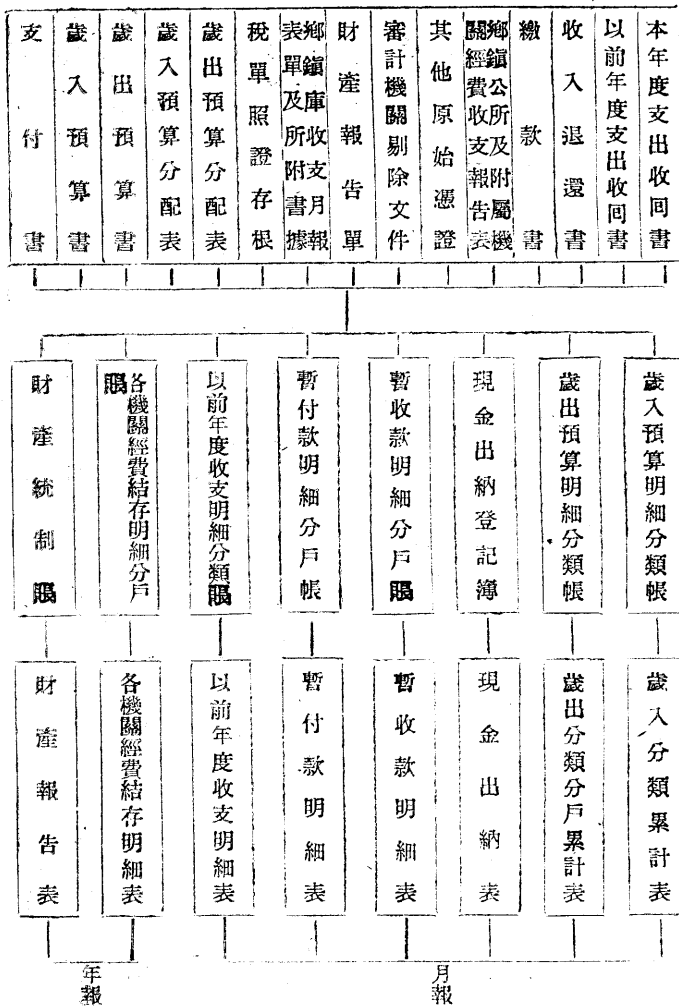 本年度支出收回書
以前年度支出收回書
收入退還書
繳款書
鄉鎮公所及附屬機
關經費收支報告表
其他原始憑證
審計機關剔除文件
財產報告單
鄉鎮庫收支月報
表單及所附書據
稅單照證存根
歲出預算分配表
歲入預算分配表
歲出預算書
歲入預算書
支付書
歲入預算明細分類帳
歲出預算明細分類帳
現金出納登記簿
暫收款明細分戶賬
暫付款明細分戶帳
以前年度收支明細分類賬
各機關經費結存明細分戶
賬
財產統制賬
歲入分類累計表
歲出分類分戶累計表
現金出納表
暫收款明細表
暫付款明細表
以前年度收支明細表
各機關經費結存明細表
財產報告表
月報
年報